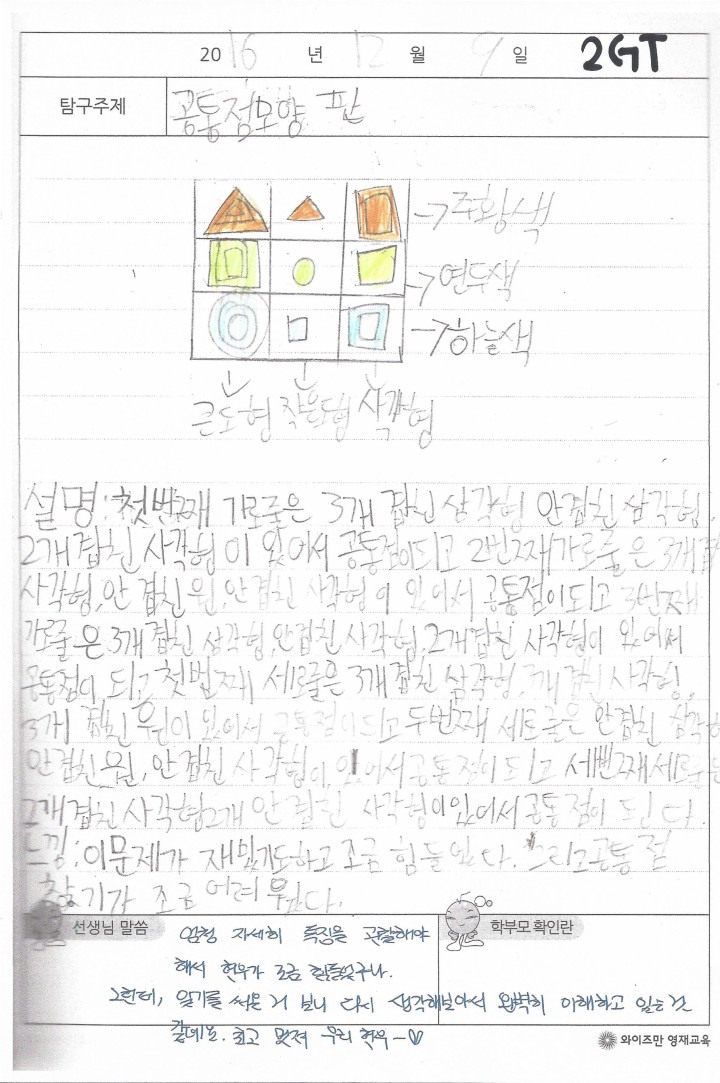 2016 년 12 월 9 일 2GT
탐구주제 공통점모양 판
→주황색
→연두색
→하늘색
큰도형 작은도형 사각형
설명: 첫번째 가로줄은 3개 겹친 삼각형 안겹친 삼각형,
2개겹친 사각형이 있어서 공통점이되고 2번째가로줄은 3개겹친
사각형, 안겹친원, 안겹친 사각형이 있어서 공통점이되고 3번째
가로줄은 3개겹친 삼각형, 안겹친사각형, 2개겹친 사각형이 있어서
공통점이 되고 첫번째 세로줄은 3개겹친 삼각형, 3개겹친사각형,
3개 겹친 원이 있어서 공통점이되고 두번째 세로줄은 안겹친 삼각형
안겹친원, 안겹친 사각형이 있어서공통점이되고 세번째세로줄은
2개겹친사각형2개 안겹친 사각형이있어서 공통점이 된다.
느낌: 이문제가 재밌기도하고 조금 힘들었다. 그리고공통점
찾기가 조금 어려웠다.
선생님 말씀
엄청 자세히 특징을 관찰해야
해서 현우가 조금 힘들었구나.
그런데, 일기를 써온 거 보니 다시 생각해보아서 완벽히 이해하고 있는것
같네요. 최고 멋져 우리 현우~♡
학부모 확인란
와이즈만 영재교육